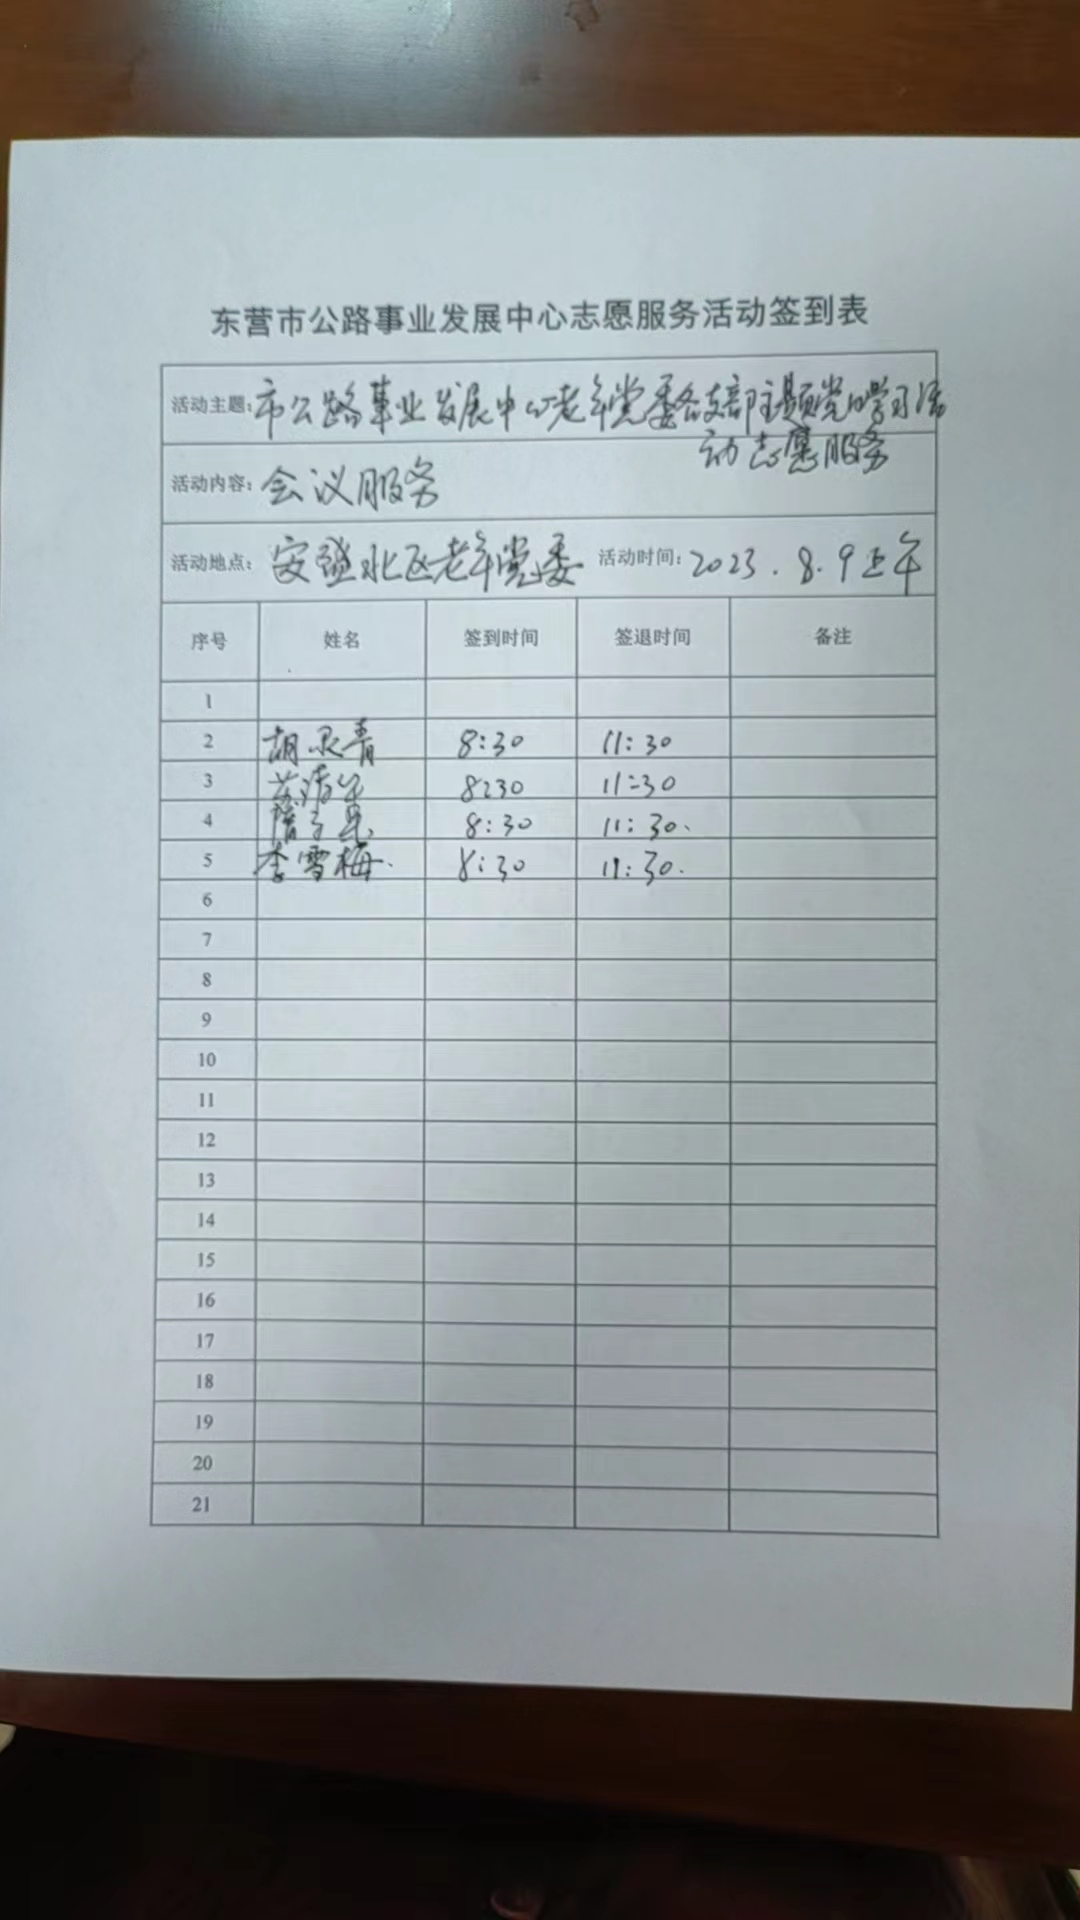 东营市公路事业发展中心志愿服务活动签到表
活动主题: 市公路事业发展中心老年党委各支部主题党日学习活
动志愿服务
活动内容: 会议服务
活动地点: 安盛北区老年党委 活动时间: 2023.8.9上午
序号 姓名 签到时间 签退时间 备注
1
2 胡 青 8:30 11:30
3 8:30 11:30
4 隋 8:30 11:30.
5 李雪梅. 8:30 11:30.
6
7
8
9
10
11
12
13
14
15
16
17
18
19
20
21